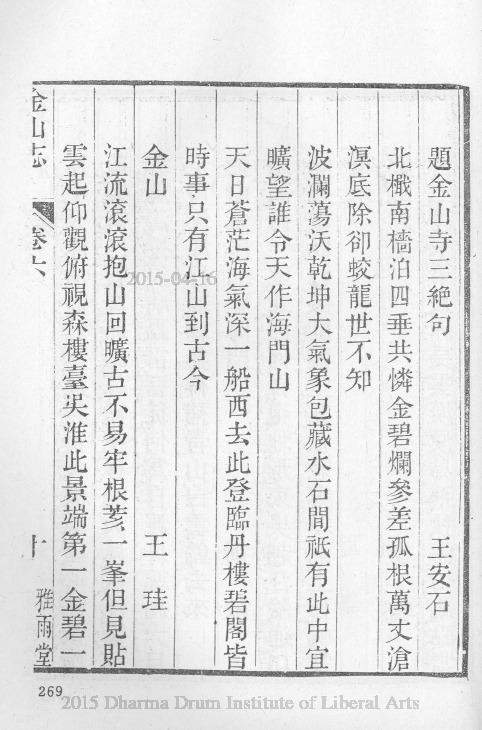 題金山寺三絶句 王安石
北檝南檣泊四垂共憐金碧爛參差孤根萬丈滄
溟底除卻蛟龍世不知
波瀾蕩沃乾坤大氣象包藏水石間祗有此中宜
曠望誰令天作海門山
天日蒼茫海氣深一船西去此登臨丹樓碧閣皆
時事只有江山到古今
金山 王珪
江流滾滾抱山回曠古不易牢根荄一峯但見貼
雲起仰觀俯視森樓臺吳淮此景端第一金碧一
金山志 卷六 十 雅雨堂
2015-04-16
269
2015 Dharma Drum Institute of Liberal Arts